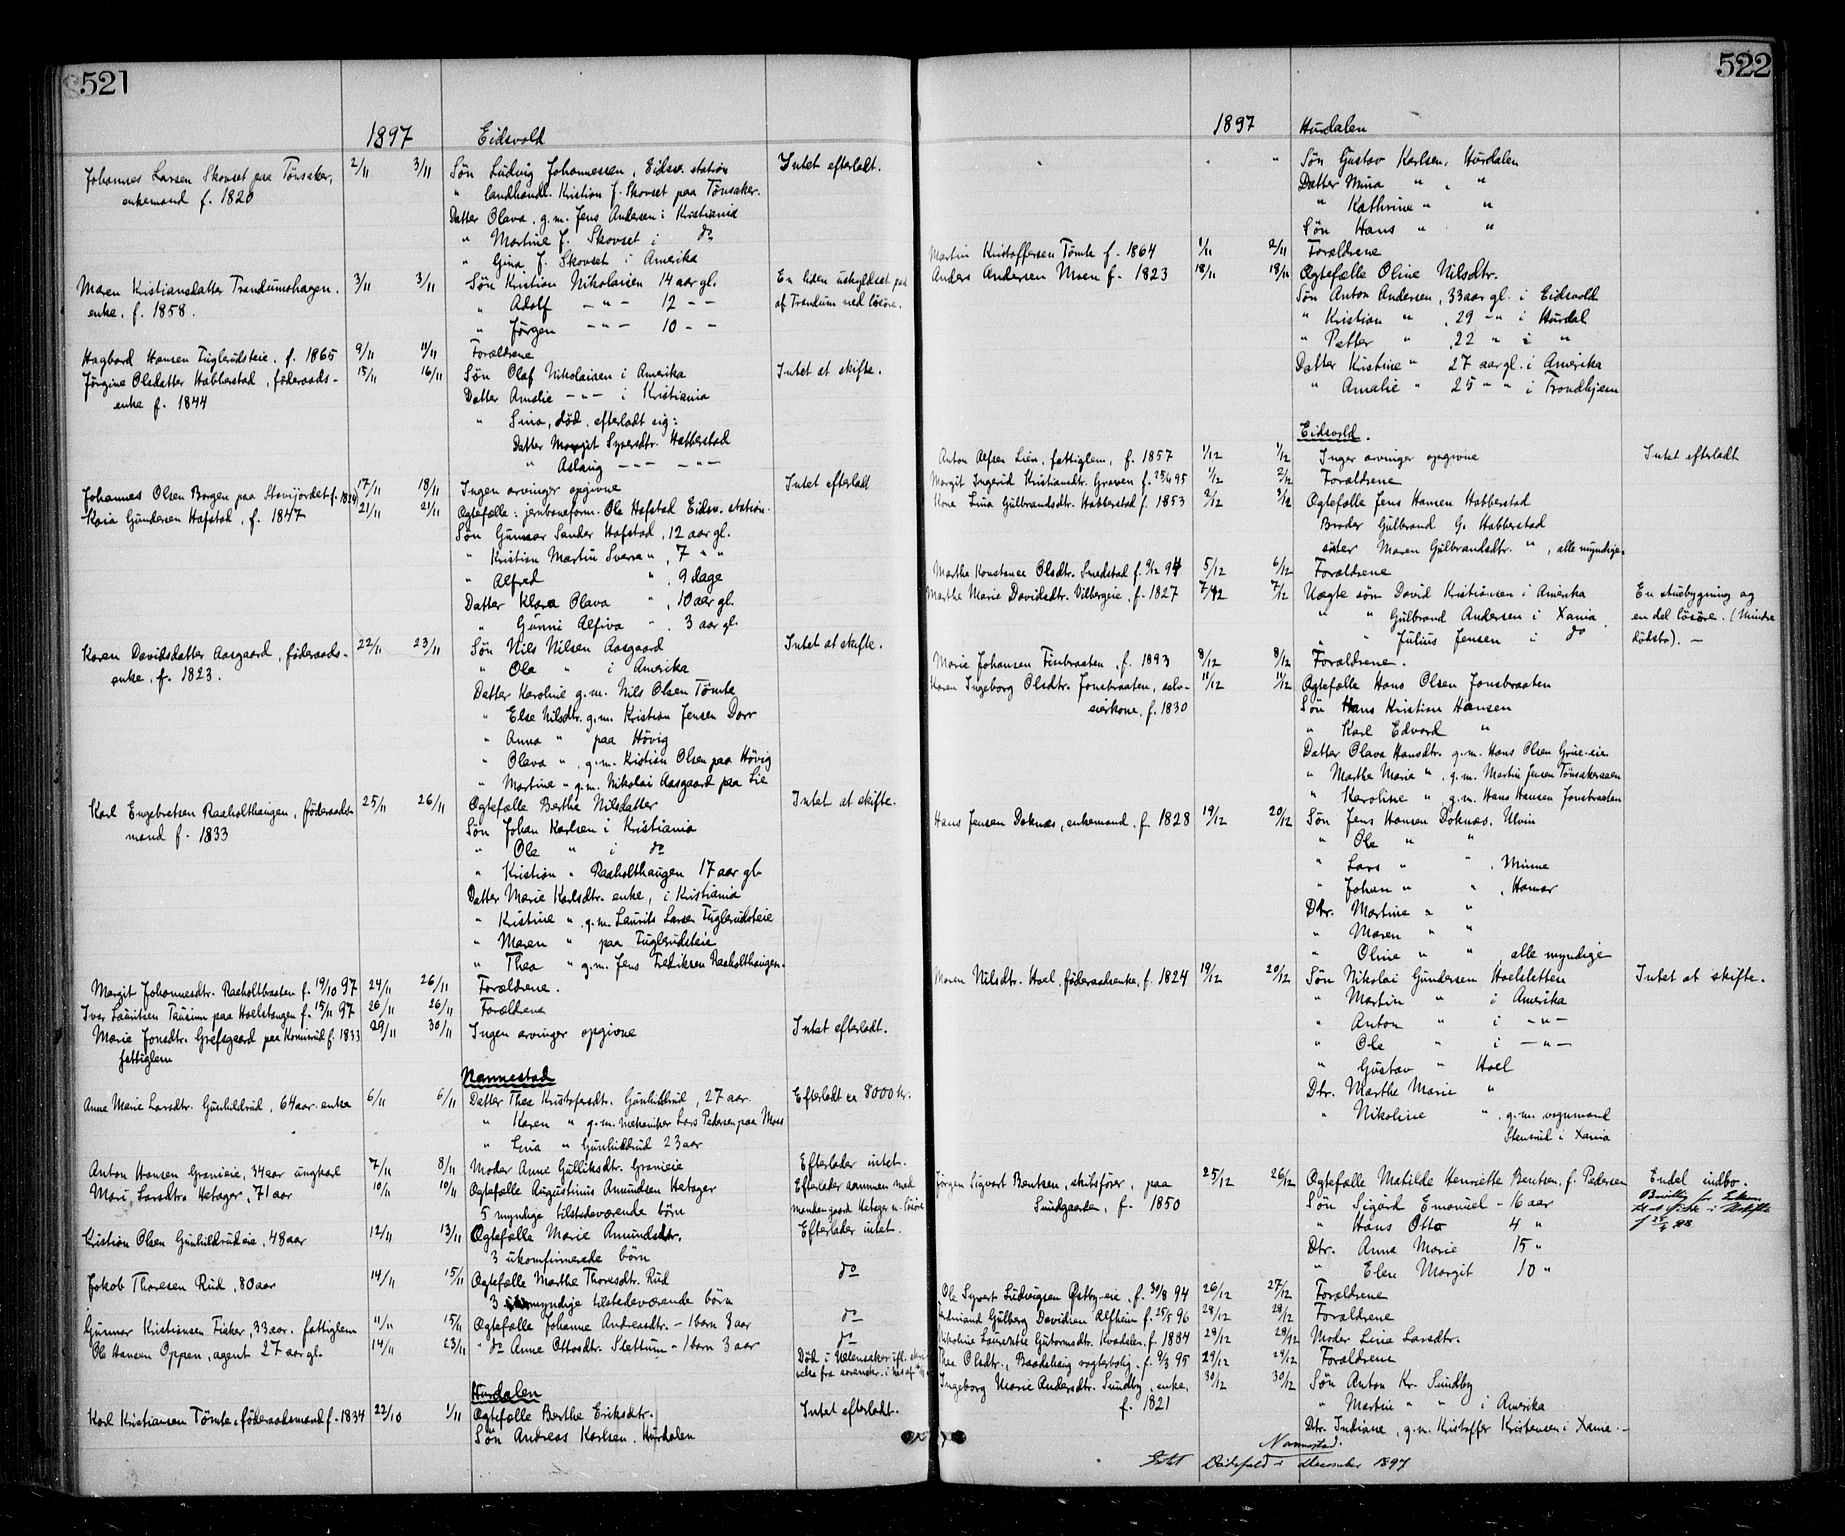 521
1897 Eidsvold
Johannes Larsen Skovset paa Tönsaker, 2/11 3/11 Sön Ludvig Johannessen, Eidsv. station Intet efterladt.
enkemand f. 1820 " landhandl. Kristian J. Skovset paa Tönsaker.
Datter Olava, g.m. Jens Andersen i Kristiania
" Martine J. Skovset i do
" Gina J. Skovset i Amerika
Maren Kristiansdatter Trandumshagen, 3/11 3/11 Sön Kristian Nikolaisen 14 aar gl. En liden uskyldset part
enke, f. 1858. " Adolf - " - 12 - - af Trandum med lösöre.
" Jörgen - " - 10 - -
Hagbard Hansen Fuglerudseie, f. 1865 9/11 11/11 Forældrene
Jörgine Olsdatter Habberstad, föderaads- 15/11 16/11 Sön Olaf Nikolaisen i Amerika Intet at skifte.
enke f. 1844 Datter Amalie - " - i Kristiania
" Sina, död, efterladt sig:
Datter Margit Syversdtr. Habberstad
" Aslaug - " - - " -
Johannes Olsen Borgen paa Stavijordet f. 1824 17/11 18/11 Ingen arvinger opgivne Intet efterladt
Karia Gundersen Hafstad, f. 1847 21/11 21/11 Ægtefælle: jernbaneform. Ole Hafstad Eidsv. station.
Sön Gunnar Sander Hafstad, 12 aar gl.
" Kristian Martin Sverre ", 7 " "
" Alfred ", 9 dage
Datter Klara Olava ", 10 aar gl.
" Gunni Alfiva " 3 aar gl.
Karen Davidsdatter Aasgaard, föderaads- 22/11 23/11 Sön Nils Nilsen Aasgaard Intet at skifte.
enke, f. 1823. " Ole " i Amerika
Datter Karoline g.m. Nils Olsen Tömte
" Else Nilsdtr. g.m. Kristian Jensen Dorr
" Anna " paa Hövig
" Olava ", g.m. Kristian Olsen paa Hövig
" Martine " g.m. Nikolai Aasgaard paa Lie
Karl Engebretsen Raaholthaugen, föderaads- 25/11 26/11 Ægtefælle Berthe Nilsdatter Intet at skifte.
mand f. 1833 Sön Johan Karlsen i Kristiania
" Ole " i do
" Kristian " Raaholthaugen 17 aar gl.
Datter Marie Karlsdtr. enke, i Kristiania
" Kristine ", g.m. Laurits Larsen Fuglerudseie
" Maren " paa Fuglerudseie
" Thea " g.m. Jens Fredriksen Raaholthaugen.
Margit Johannesdtr. Raaholtbraaten f. 19/10 97 24/11 26/11 Forældrene.
Ivar Lauritsen paa Hoelstangen f. 15/11 97 26/11 26/11 Forældrene
Marie Jonsdtr. Grefsgaard paa f. 1833 29/11 30/11 Ingen arvinger opgivne Intet efterladt.
fattiglem
Nannestad
Anne Marie Larsdtr. Gunhildrud, 64 aar. enke 6/11 6/11 Datter Thea Kristofersdtr. Gunhildrud, 27 aar. Efterladt ca 8000 kr.
" Karen " g.m. mekaniker Lars Pedersen paa Moss
" Lina " Gunhildrud 23 aar
Anton Hansen Granieie, 34 aar ungkarl 7/11 8/11 Moder Anne Gulliksdtr. Granieie Efterlader intet.
Mari Larsdtr Hetager, 71 aar 10/11 10/11 Ægtefælle Augustinus Amundsen Hetager Efterlader sammen med
5 myndige tilstedeværende börn manden gaard Hetager m. lösöre
Kristian Olsen Gunhildrudeie, 48 aar 12/11 13/11 Ægtefælle Marie Amundsdtr. Efterlader intet.
3 ukonfirmerede börn
Jakob Thoresen Rud, 80 aar 14/11 15/11 Ægtefælle Marthe Thoresdtr. Rud do
3 myndige tilstedeværende börn
Gunnar Kristiansen Fisker, 33 aar. fattiglem 11/11 15/11 Ægtefælle Johanne Andreasdtr. - 1 barn 3 aar do
Ole Hansen Oppen, agent 27 aar gl. 14/11 23/11 " do Anne Ottosdtr. Slettum - 1 barn 3 aar do
Död i Ullensaker ifl.
Hurdalen
Karl Kristiansen Tömte, föderaadsmand f. 1834 22/10 1/11 Ægtefælle Berthe Eriksdtr. Intet efterladt.
Sön Andreas Karlsen, Hurdalen
522
1897 Hurdalen
" " Sön Gustav Karlsen, Hurdalen
Datter Mina " , "
" Kathrine " "
Sön Hans " "
Martin Kristoffersen Tömte f. 1864 1/11 2/11 Forældrene
Anders Andersen Moen f. 1823 18/11 18/11 Ægtefælle Oline Nilsdtr.
Sön Anton Andersen, 33 aar gl. i Eidsvold
" Kristian " , 29 - " i Hurdal
" Petter " , 22 " i "
Datter Kristine " 27 aar gl. i Amerika
" Amalie " 25 " " i Trondhjem
Eidsvold.
Anton Alfsen Lien, fattiglem, f. 1857 1/12 1/12 Ingen arvinger opgivne Intet efterladt
Margit Ingerid Kristiansdtr. Graven f. 25/6 95 1/12 2/12 Forældrene
Kone Lina Gulbrandsdtr. Habberstad f. 1853 2/12 3/12 Ægtefælle Jens Hansen Habberstad
Broder Gulbrand G. Habberstad
söster Maren Gulbrandsdtr. ", alle myndige.
Marthe Konstance Olsdtr. Smedstad f. 9/12 94 5/12 6/12 Forældrene
Marthe Marie Davidsdtr. Vilbergeie, f. 1827 7/12 7/12 Uægte sön David Kristiansen i Amerika En stuebygning og
" " Gulbrand Andersen i Xania, en del lösöre. (Mindre
" " Julius Jensen i do dödsbo). -
Marie Johansen Finbraaten, f. 1893 8/12 8/12 Forældrene.
Karen Ingeborg Olsdtr. Jonsbraaten, selv- 11/12 11/12 Ægtefælle Hans Olsen Jonsbraaten
eierkone, f. 1830 Sön Hans Kristian Hansen
" Karl Edvard "
Datter Olava Hansdtr. g.m. Hans Olsen Grue-eie
" Marthe Marie ", g.m. Martin Jensen Tönsakeraaen
" Karoline ", g.m. Hans Hansen Jonsbraaten
Hans Jensen Doknæs, enkemand, f. 1828 19/12 20/12 Sön Jens Hansen Doknæs, Ulvin
" Ole " "
" Lars " " , Minne
" Johan " " , Hamar
Dtr. Martine " "
" Maren " "
" Oline " " , alle myndige
Maren Nilsdtr. Hoel, föderaadsenke, f. 1824 19/12 20/12 Sön Nikolai Gundersen Hoelsletten Intet at skifte.
" Martin " i Amerika
" Anton " i - " -
" Ole " i - " -
" Gustav " Hoel
Dtr. Marthe Marie "
" Nikoline " , g.m. vognmand
Stensrud i Xania
Jörgen Sigvart Bentsen, skibsförer, paa 25/12 26/12 Ægtefælle Matilde Henriette Bentsen, f. Pedersen Endel indbo.
Sundgaarden, f. 1850 Sön Sigurd Emanuel - 16 aar
" Hans Otto 4 "
Dtr. Anna Marie 15 "
" Elen Margit 10 "
Ole Syvert Ludvigsen Östby-eie, f. 30/8 94 26/12 27/12 Forældrene
Ferdinand Gulberg Davidsen Alfheim f. 25/5 96 28/12 28/12 Forældrene
Nikoline Laurentse Gutormsdtr. Kvadalen, f. 1884 29/12 29/12 Moder Lina Larsdtr.
Thea Olsdtr., Baadshaug vogterbolig, f. 9/3 95 29/12 29/12 Forældrene
Ingeborg Marie Andersdtr. Sundby, enke, 30/12 30/12 Sön Anton Kr. Sundby
f. 1821 " Martin " " i Amerika
Dtr. Indiane, g.m. Kristoffer Kristensen i Xania. -
Nannestad.
Intet Dödsfald i december 1897